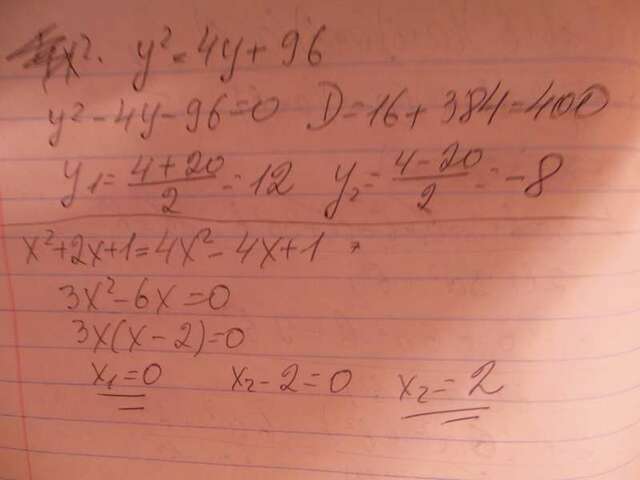 4x². y² = 4y + 96
y² - 4y - 96 = 0 D = 16 + 384 = 400
y₁ = (4 + 20)/2 = 12 y₂ = (4 - 20)/2 = -8
x² + 2x + 1 = 4x² - 4x + 1
3x² - 6x = 0
3x(x - 2) = 0
x₁ = 0 x₂ - 2 = 0 x₂ = 2